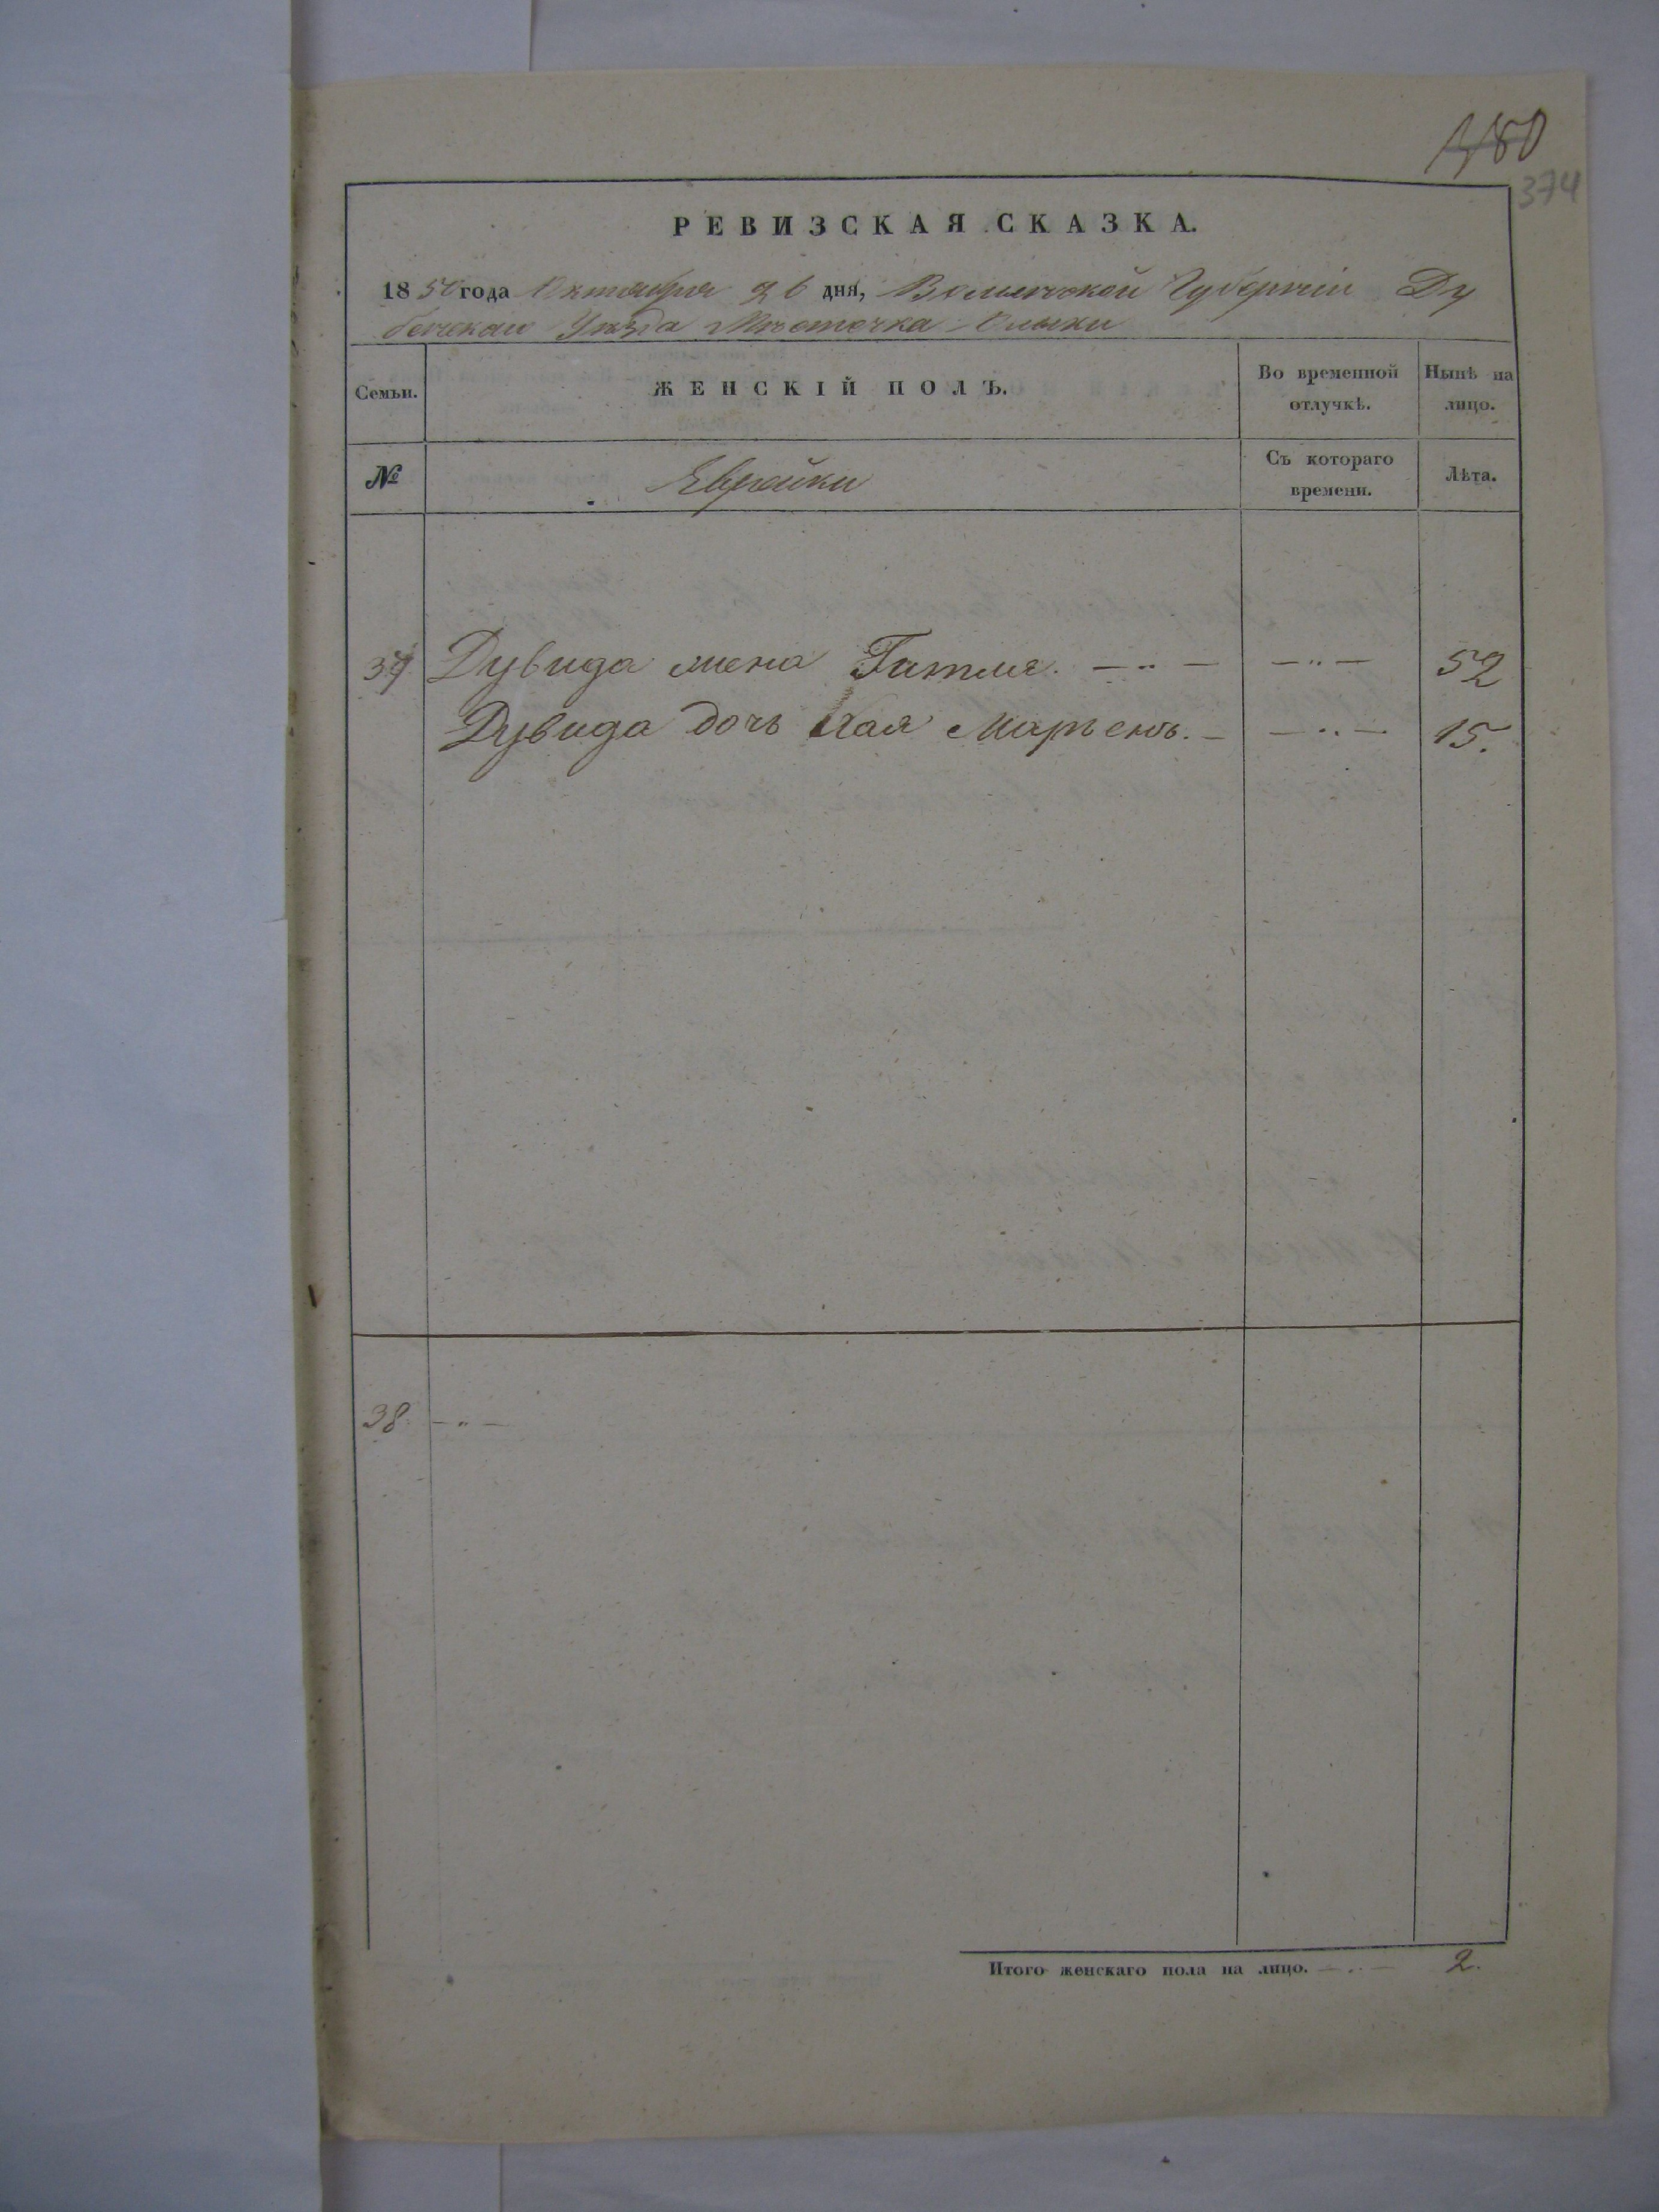 180
374
РЕВИЗСКАЯ СКАЗКА.
1850 года Октября 26 дня, Волынской Губерніи Ду
бенскаго Уѣзда Мѣстечка Олыки
Семьи. ЖЕНСКІЙ ПОЛЪ. Во временной отлучкѣ. Нынѣ на лицо.
№ Еврейки Съ котораго времени. Лѣта.
37 Дувида жена Гитля. — „ — — „ — 52
Дувида дочь Хая Марьемъ. — — „ — 15.
38. — „ —
Итого женскаго пола на лицо. — „ — 2.